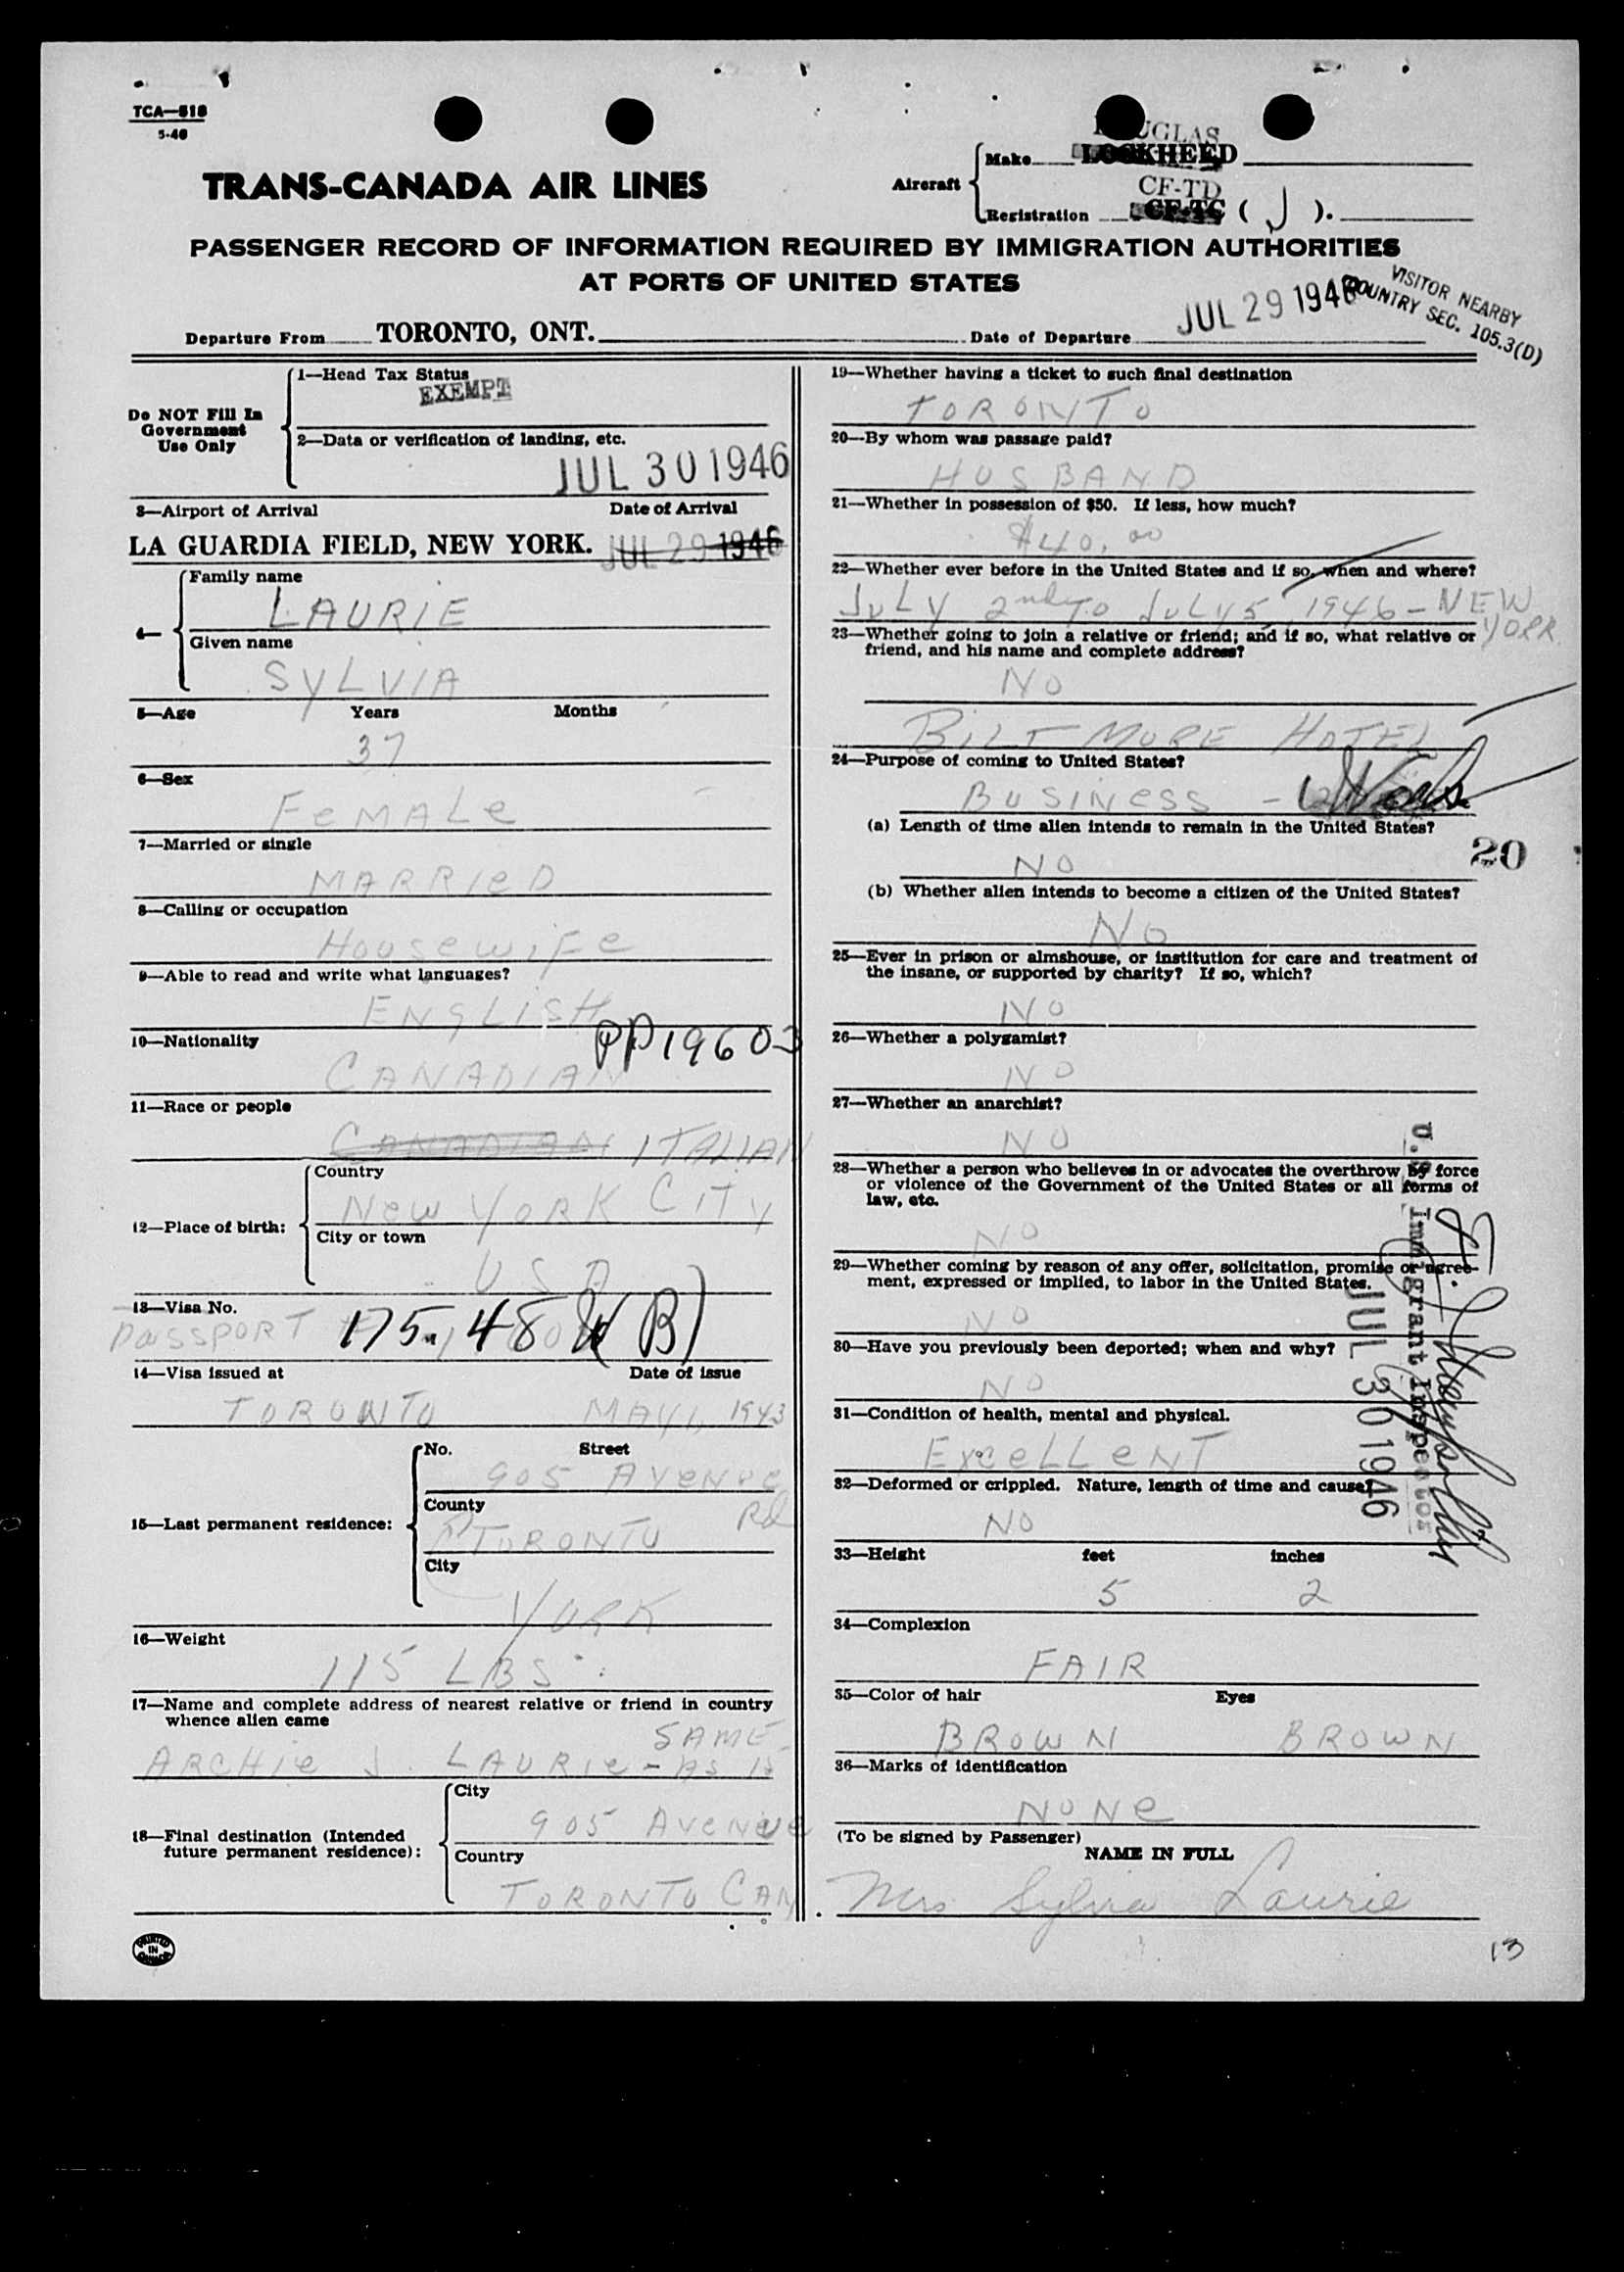 TCA—518
5-46
DOUGLAS
Make LOCKHEED
TRANS-CANADA AIR LINES
Aircraft
CF-TD
Registration CF-TC ( J ).
PASSENGER RECORD OF INFORMATION REQUIRED BY IMMIGRATION AUTHORITIES
AT PORTS OF UNITED STATES
VISITOR NEARBY
COUNTRY SEC. 105.3(D)
Departure From TORONTO, ONT. Date of Departure JUL 29 1946
Do NOT Fill In
Government
Use Only
1—Head Tax Status
EXEMPT
2—Data or verification of landing, etc.
JUL 30 1946
3—Airport of Arrival Date of Arrival
LA GUARDIA FIELD, NEW YORK. JUL 29 1946
4—
Family name
LAURIE
Given name
SYLVIA
5—Age Years Months
37
6—Sex
FeMALe
7—Married or single
MARRIeD
8—Calling or occupation
HousewiFe
9—Able to read and write what languages?
ENGLISH
10—Nationality PP19603
CANADIAN
11—Race or people
CANADIAN ITALIAN
12—Place of birth:
Country
New YORK CITY
City or town
USA
13—Visa No.
PassPORT 175. 48 (B)
14—Visa issued at Date of issue
TORONTO MAY 1, 1943
15—Last permanent residence:
No. Street
905 AVENUE
Rd
County
TORONTO
City
YORK
16—Weight
115 LBS.
17—Name and complete address of nearest relative or friend in country
whence alien came
SAME
ARCHIe J. LAURIe - AS 15
18—Final destination (Intended
future permanent residence):
City
905 AVeNUe
Country
TORONTO CAN
PRINTED
IN
CANADA
19—Whether having a ticket to such final destination
TORONTO
20—By whom was passage paid?
HUSBAND
21—Whether in possession of $50. If less, how much?
$40.00
22—Whether ever before in the United States and if so, when and where?
JULY 2nd TO JULY 5, 1946 - NEW
YORK
23—Whether going to join a relative or friend; and if so, what relative or
friend, and his name and complete address?
NO
BILTMORE HOTEL
24—Purpose of coming to United States?
BUSINeSS -
(a) Length of time alien intends to remain in the United States?
20
NO
(b) Whether alien intends to become a citizen of the United States?
No
25—Ever in prison or almshouse, or institution for care and treatment of
the insane, or supported by charity? If so, which?
NO
26—Whether a polygamist?
NO
27—Whether an anarchist?
NO
28—Whether a person who believes in or advocates the overthrow by force
or violence of the Government of the United States or all forms of
law, etc.
NO
29—Whether coming by reason of any offer, solicitation, promise or agree-
ment, expressed or implied, to labor in the United States.
NO
30—Have you previously been deported; when and why?
NO
31—Condition of health, mental and physical.
ExceLLeNT
32—Deformed or crippled. Nature, length of time and cause?
NO
U.S. Immigrant Inspector
JUL 30 1946
33—Height feet inches
5 2
34—Complexion
FAIR
35—Color of hair Eyes
BROWN BROWN
36—Marks of identification
NoNe
(To be signed by Passenger)
NAME IN FULL
Mrs Sylvia Laurie
13